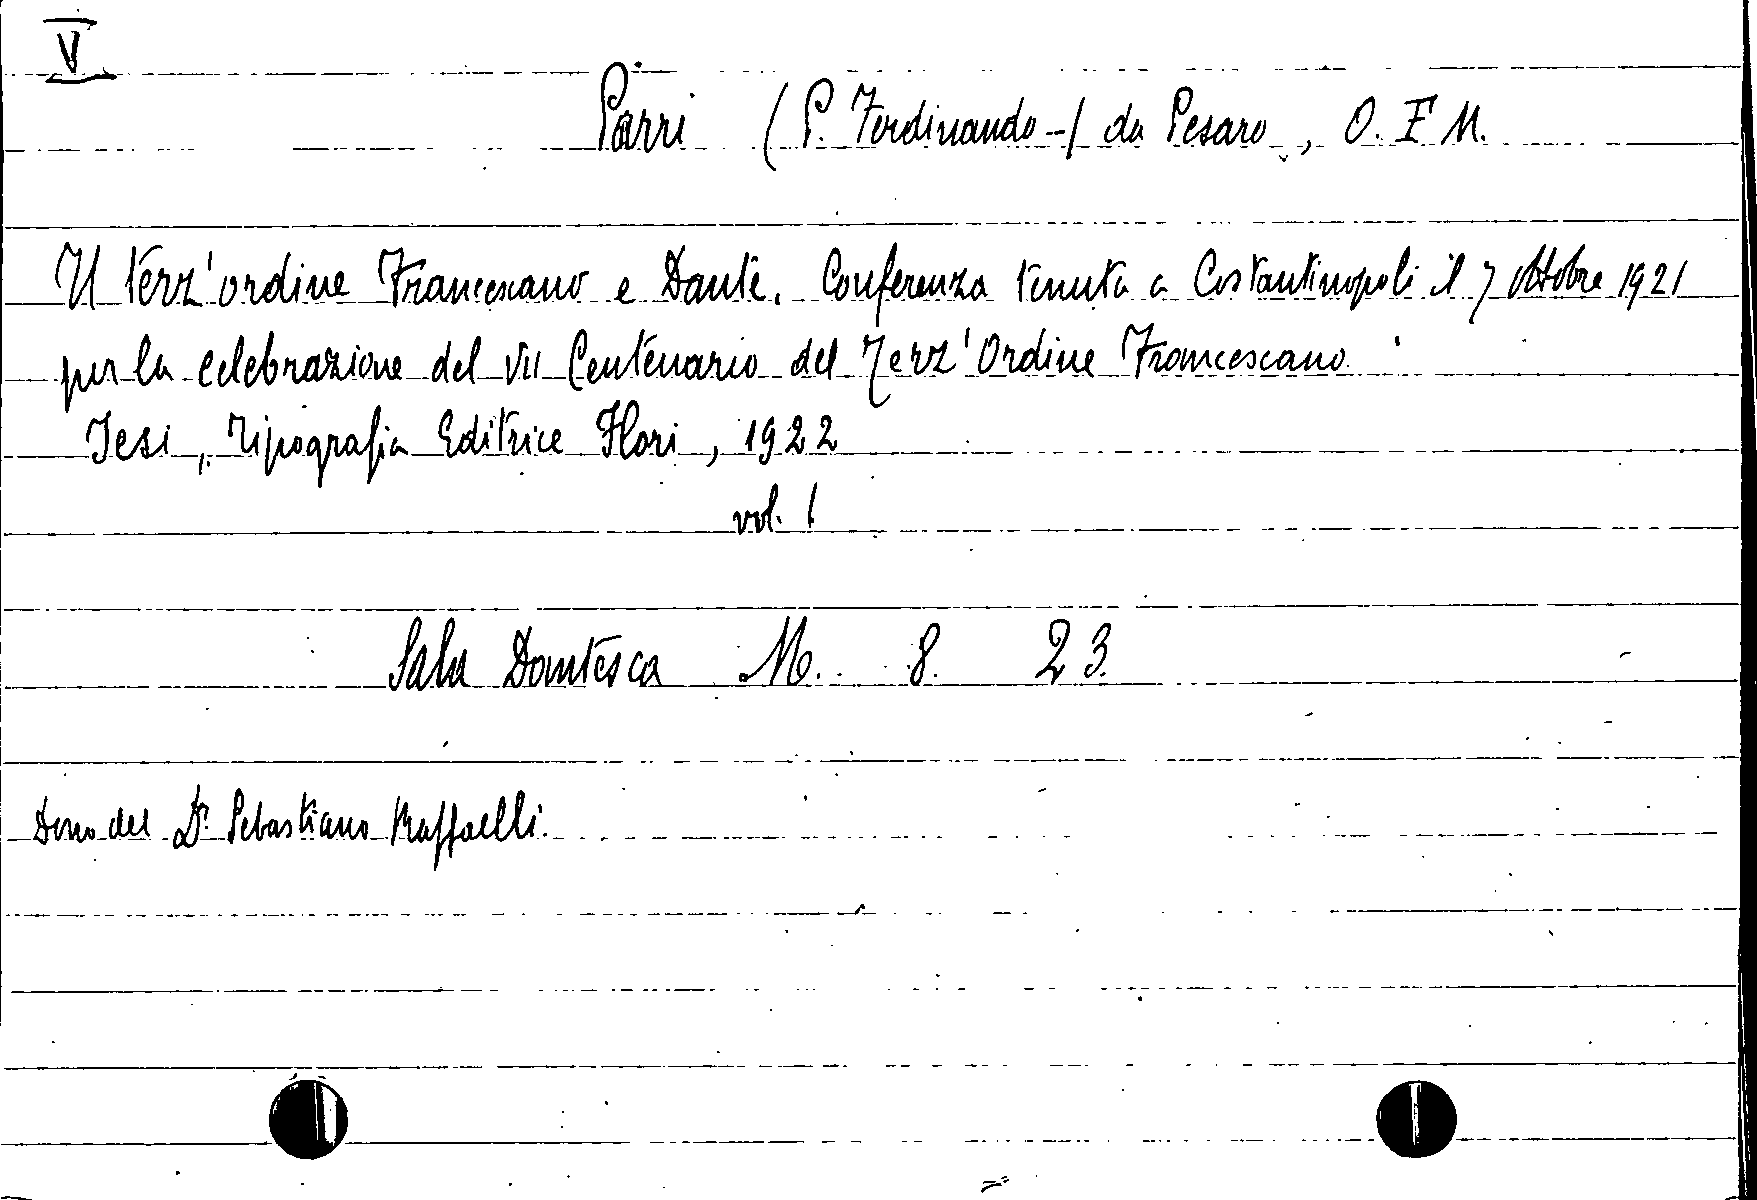 V
Parri (P. Ferdinando --) da Pesaro, O. F. M.
Il terz'ordine Francescano e Dante. Conferenza tenuta a Costantinopoli il 7 ottobre 1921
per la celebrazione del VII Centenario del Terz'Ordine Francescano
Jesi, Tipografia Editrice Flori, 1922
vol. 1
Sala Dantesca M. 8. 23.
Dono del Dr. Sebastiano Raffaelli.